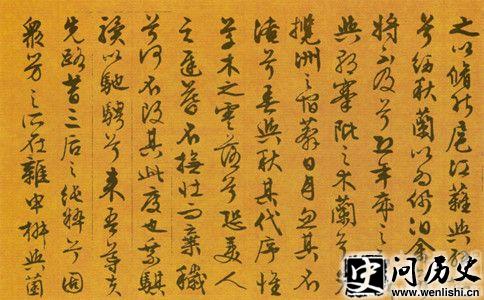 之以脩能扈江蘺與辟
兮紉秋蘭以為佩汨余
將不及兮恐年歲之
與朝搴阰之木蘭兮
攬洲之宿莽日月忽其不
淹兮春與秋其代序惟
草木之零落兮恐美人
之遲暮不撫壯而棄穢
兮何不改其此度也乘騏
驥以馳騁兮來吾導夫
先路昔三后之純粹兮固
衆芳之所在雜申椒與菌
史 问历史
www.wenlishi.cn